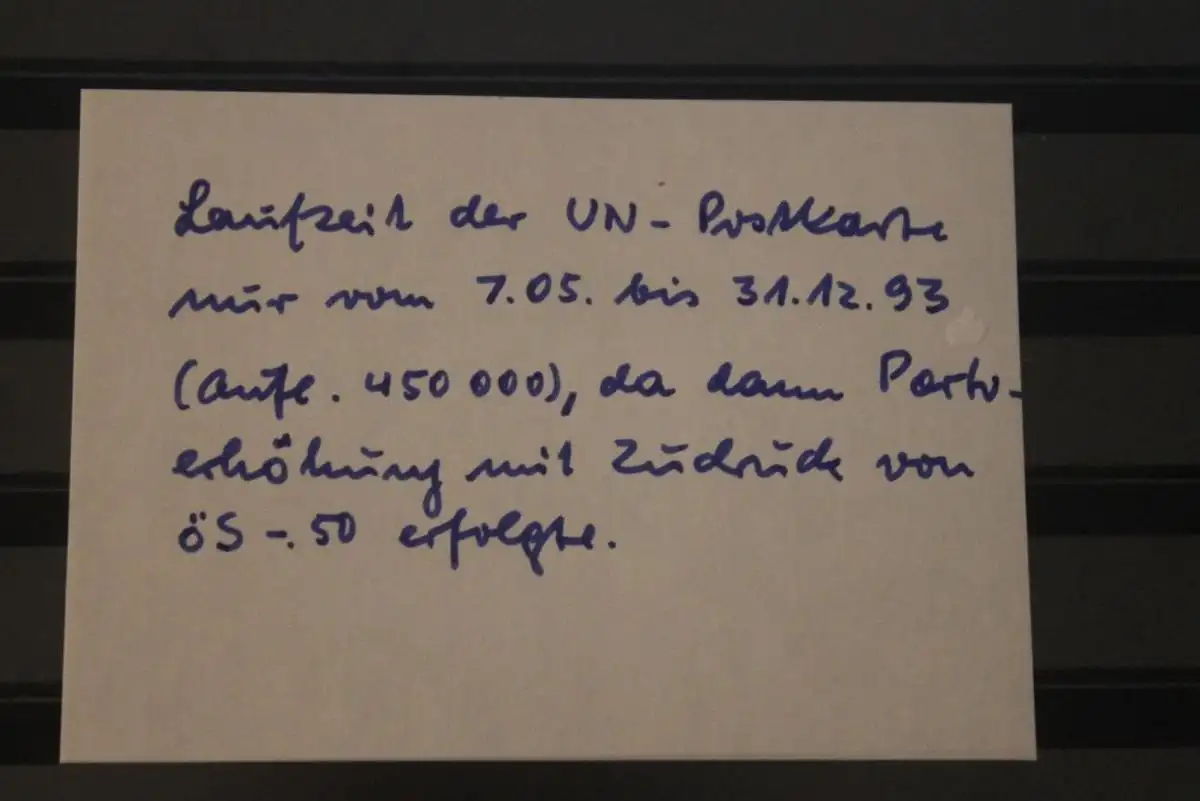 Laufzeit der UN-Postkarte
nur vom 7.05. bis 31.12.93
(Aufl. 450 000), da dann Porto-
erhöhung mit Zudruck von
öS -.50 erfolgte.